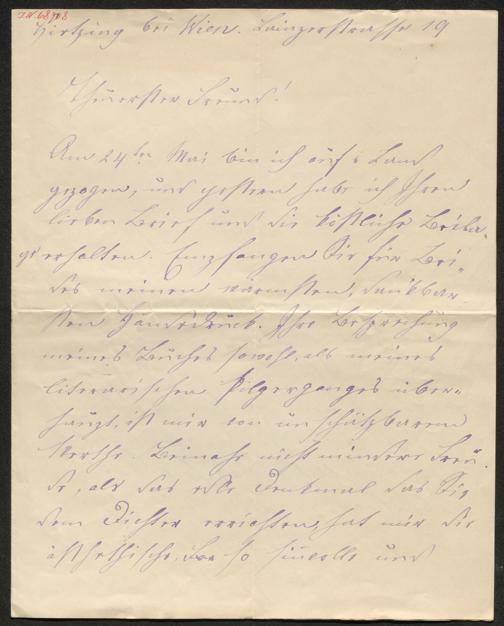 I.N. 68908
Hietzing bei Wien. Lainzerstrasse 19
Theuerster Freund!
Am 24ten Mai bin ich auf's Land
gezogen, und gestern habe ich Ihren
lieben Brief und die köstliche Beila-
ge erhalten. Empfangen Sie für Bei-
des meinen wärmsten, dankbar-
sten Händedruck. Ihre Besprechung
meines Buches sowohl, als meines
literarischen Pilgerganges über-
haupt, ist mir von unschätzbarem
Werthe. Beinahe nicht mindere Freu-
de, als das edle Denkmal das Sie
dem Dichter errichten, hat mir die
ästhetische, so sinvolle und